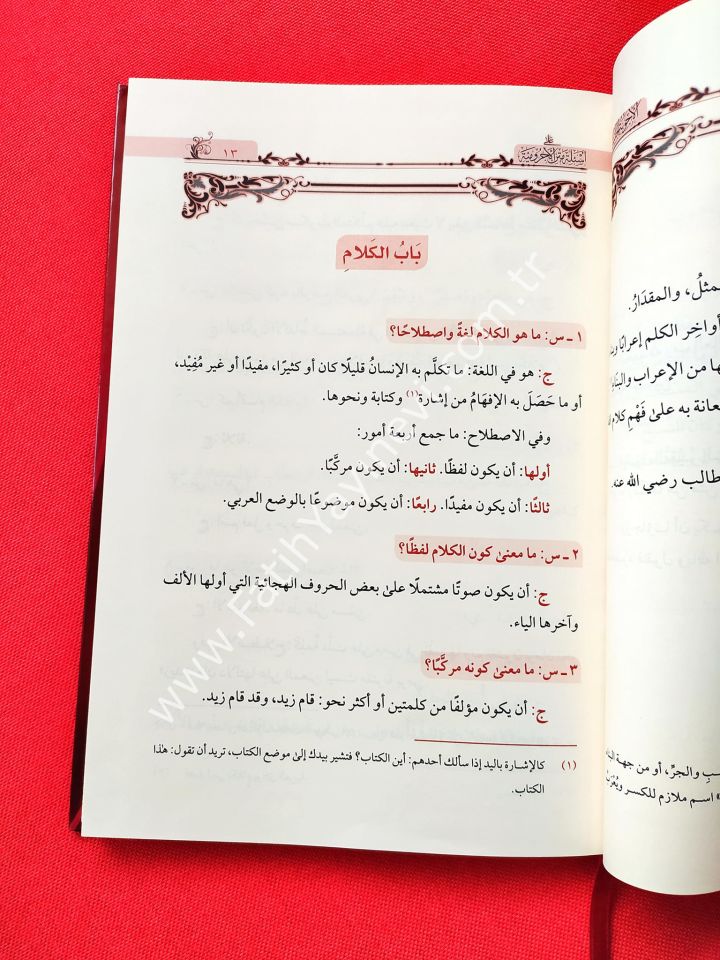 أسئلة متن الآجرومية
١٣
بَابُ الكَلامِ
١ ـ س: ما هو الكلام لغةً واصطلاحًا؟
ج: هو في اللغة: ما تكلَّم به الإنسانُ قليلًا كان أو كثيرًا، مفيدًا أو غير مُفِيْد،
أو ما حَصَلَ به الإفهَامُ من إشارة(١) وكتابة ونحوها.
وفي الاصطلاح: ما جمع أربعة أمور:
أولها: أن يكون لفظًا. ثانيها: أن يكون مركَّبًا.
ثالثًا: أن يكون مفيدًا. رابعًا: أن يكون موضوعًا بالوضع العربي.
٢ ـ س: ما معنىٰ كون الكلام لفظًا؟
ج: أن يكون صوتًا مشتملًا علىٰ بعض الحروف الهجائية التي أولها الألف
وآخرها الياء.
٣ ـ س: ما معنىٰ كونه مركَّبًا؟
ج: أن يكون مؤلفًا من كلمتين أو أكثر نحو: قام زيد، وقد قام زيد.
(١) كالإشارة باليد إذا سألك أحدهم: أين الكتاب؟ فتشير بيدك إلىٰ موضع الكتاب، تريد أن تقول: هٰذا
الكتاب.
www.FatihYayinevi.com.tr
مثلُ، والمقدَارُ.
أواخِر الكلم إعرابًا
ها من الإعراب والبنا
عانة به علىٰ فَهْمِ كلام
طالب رضي الله عنه.
ـبِ والجرِّ، أو من جهة
اسم ملازم للكسر